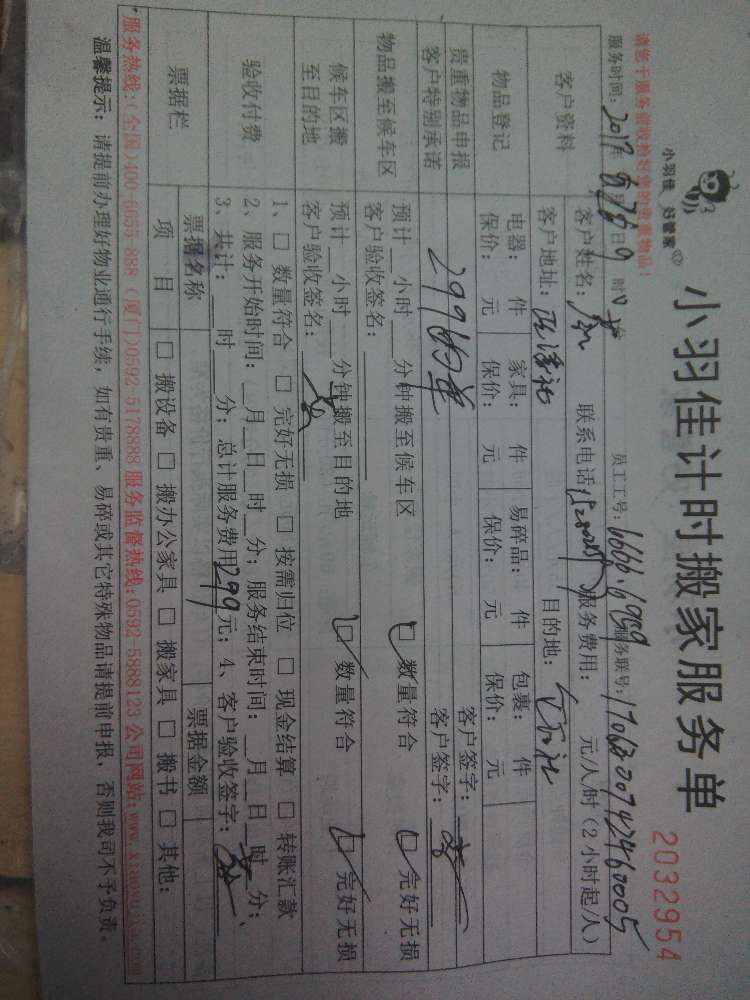 小羽佳 好管家
小羽佳计时搬家服务单
2032954
请您于服务前收拾好您的贵重物品!
服务时间: 2017年 月 日 时 分 员工工号: 6666.6959 服务联号:
客户资料
客户姓名: 联系电话: 服务费用: 元/人/时(2小时起/人)
客户地址: 目的地:
物品登记
电器: 件 家具: 件 易碎品: 件 包裹: 件
保价: 元 保价: 元 保价: 元 保价: 元
贵重物品申报 客户签字:
客户特别承诺 299的单 客户签字:
物品搬至候车区
预计__小时__分钟搬至候车区 □数量符合 □完好无损
客户验收签名:
候车区搬至目的地
预计__小时__分钟搬至目的地 □数量符合 □完好无损
客户验收签名:
验收付费
1、□ 数量符合 □ 完好无损 □ 按需归位 □ 现金结算 □ 转账汇款
2、服务开始时间:__月__日__时__分; 服务结束时间:__月__日__时__分;
3、共计:__时__分; 总计服务费用299元; 4、客户验收签字:
票据栏
票据名称 票据金额
项 目 □ 搬设备 □ 搬办公家具 □ 搬家具 □ 搬书 □ 其他:
*服务热线:(全国)400-6655-888 (厦门)0592-5178888 服务监督热线:0592-5888123 公司网站:www.xiaoyujia.com
温馨提示: 请提前办理好物业通行手续, 如有贵重、易碎或其它特殊物品请提前申报, 否则我司不予负责。